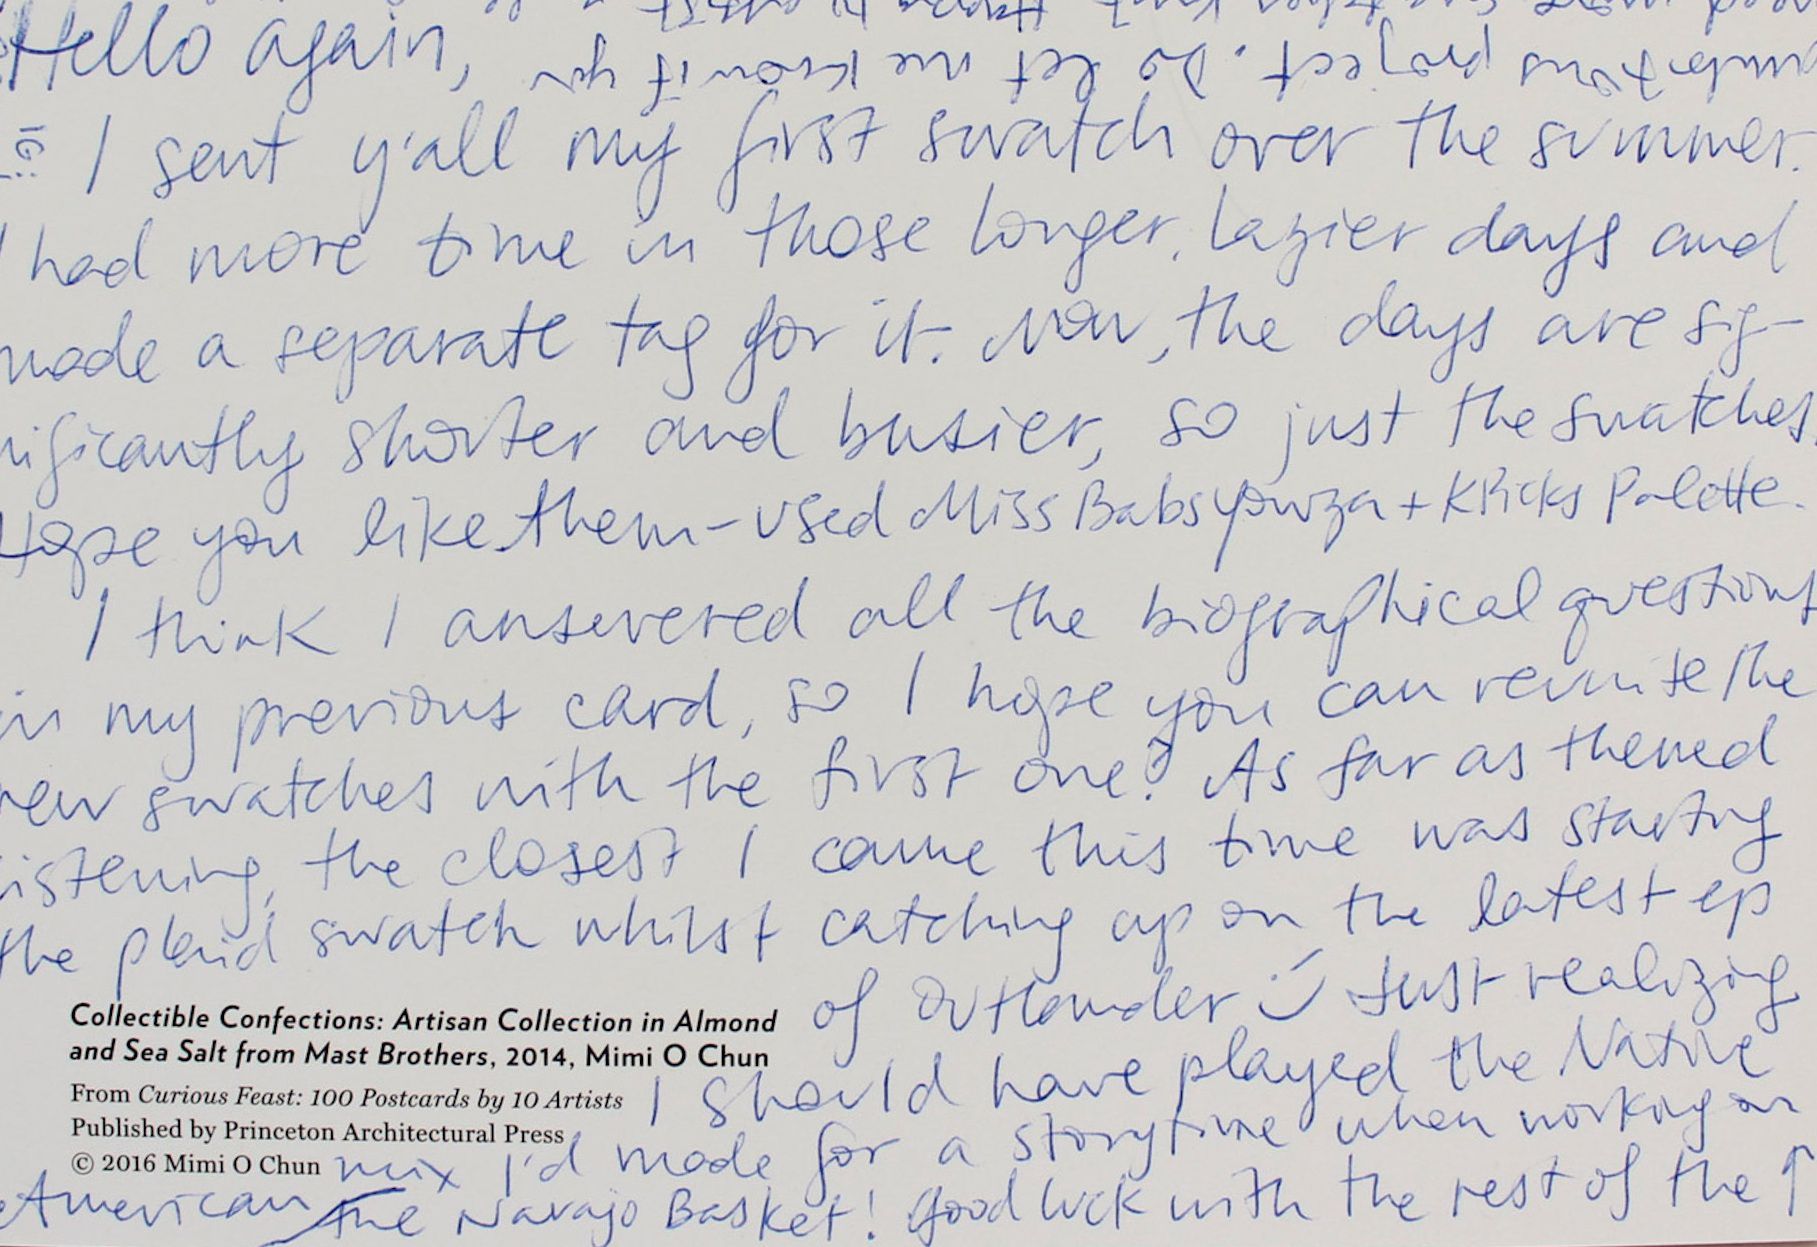 Hello again,
I sent y'all my first swatch over the summer.
I had more time in those longer, lazier days and
made a separate tag for it. Now, the days are sig-
nificantly shorter and busier, so just the swatches.
Hope you like them - used Miss Babs Yowza + KPicks Palette.
I think I answered all the biographical questions
in my previous card, so I hope you can reunite the
new swatches with the first one? As far as themed
listening, the closest I came this time was starting
the plaid swatch whilst catching up on the latest ep
of Outlander :) Just realizing
I should have played the Native
American mix I'd made for a storytime when working on
the Navajo Basket! Good luck with the rest of the ↑
project. Do let me know if you
IG:
Collectible Confections: Artisan Collection in Almond
and Sea Salt from Mast Brothers, 2014, Mimi O Chun
From Curious Feast: 100 Postcards by 10 Artists
Published by Princeton Architectural Press
© 2016 Mimi O Chun